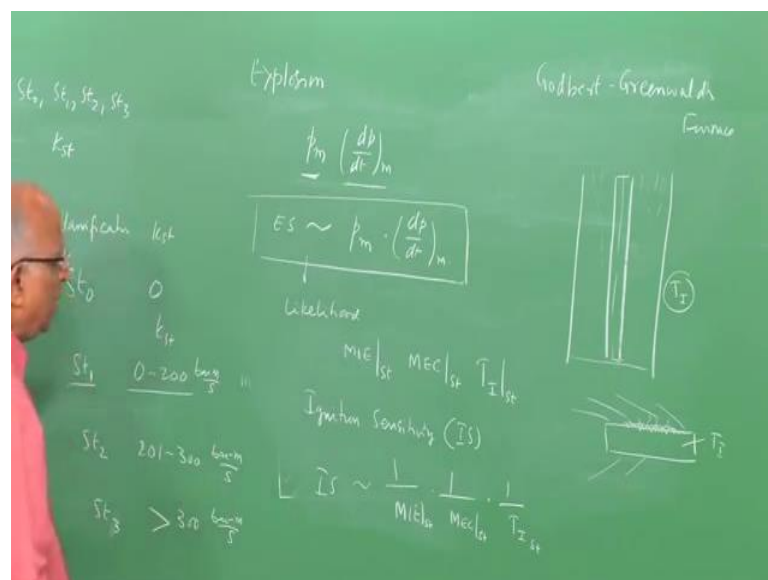 St₀, St₁, St₂, St₃
Kst
lassification Kst
St₀ 0
Kst
St₁ 0-200 bar-m/s
St₂ 201-300 bar-m/s
St₃ > 300 bar-m/s
Explosion
pₘ (dp/dt)ₘ
ES ~ pₘ · (dp/dt)ₘ
Likelihood
MIE|st MEC|st T_I|st
Ignition Sensitivity (IS)
IS ~ 1/MIE|st · 1/MEC|st · 1/T_I st
Godbert-Greenwalds
Furnace
T_I
T_I